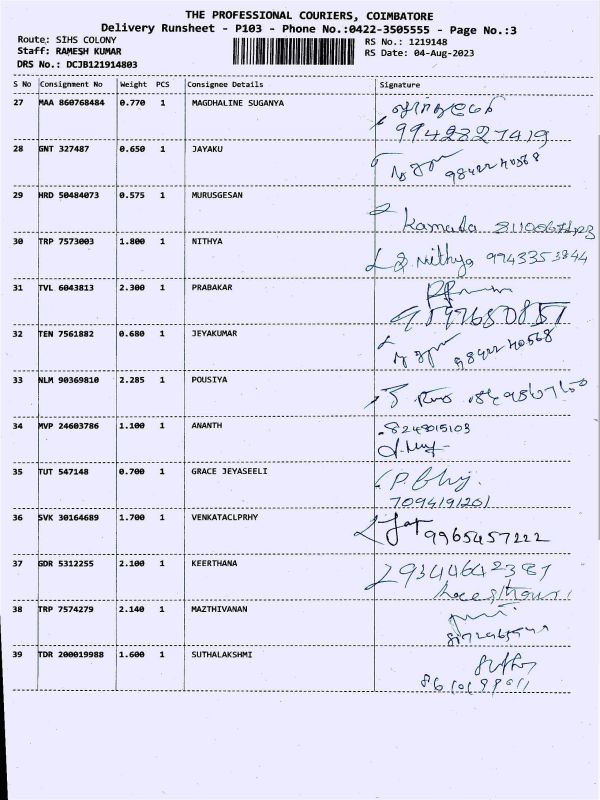 THE PROFESSIONAL COURIERS, COIMBATORE
Delivery Runsheet - P103 - Phone No.:0422-3505555 - Page No.:3
Route: SIHS COLONY RS No.: 1219148
Staff: RAMESH KUMAR RS Date: 04-Aug-2023
DRS No.: DCJB121914803
S No Consignment No Weight PCS Consignee Details Signature
27 MAA 860768484 0.770 1 MAGDHALINE SUGANYA
9942827419
28 GNT 327487 0.650 1 JAYAKU 9842240568
29 HRD 50484073 0.575 1 MURUSGESAN
Kamala
30 TRP 7573003 1.800 1 NITHYA Nithya 9943353844
31 TVL 6043813 2.300 1 PRABAKAR
32 TEN 7561882 0.680 1 JEYAKUMAR 9842240568
33 NLM 90369810 2.285 1 POUSIYA
34 MVP 24603786 1.100 1 ANANTH 8248015103
35 TUT 547148 0.700 1 GRACE JEYASEELI
7094191201
36 SVK 30164689 1.700 1 VENKATACLPRHY 9965457222
37 GDR 5312255 2.100 1 KEERTHANA 9344642387
38 TRP 7574279 2.140 1 MAZTHIVANAN
39 TDR 200019988 1.600 1 SUTHALAKSHMI